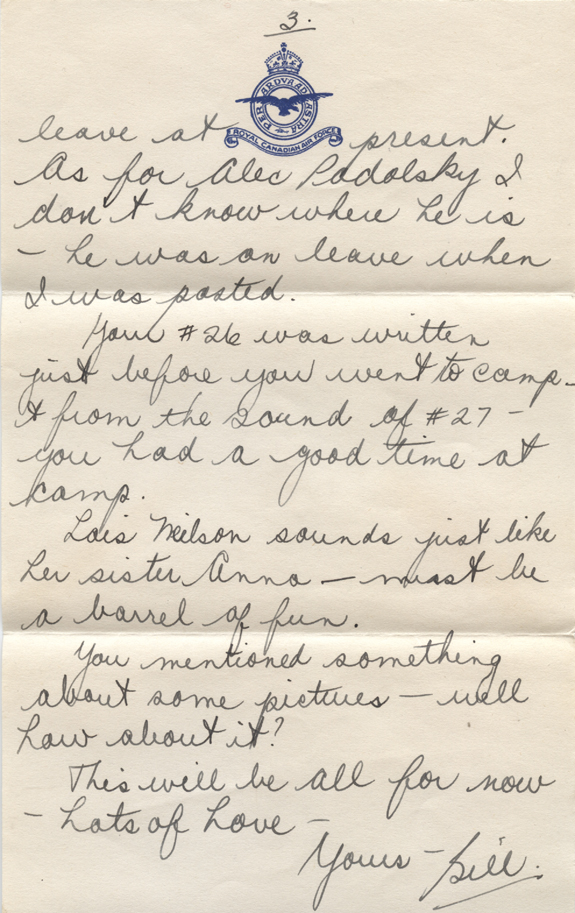 3.
PER ARDUA AD ASTRA
ROYAL CANADIAN AIR FORCE
leave at present.
As for Alec Podolsky I
don't know where he is
– he was on leave when
I was posted.
Your #26 was written
just before you went to camp –
& from the sound of #27 –
you had a good time at
camp.
Lois Neilson sounds just like
her sister Anna – must be
a barrel of fun.
You mentioned something
about some pictures – well
how about it?
This will be all for now
– Lots of Love –
Yours – Bill.